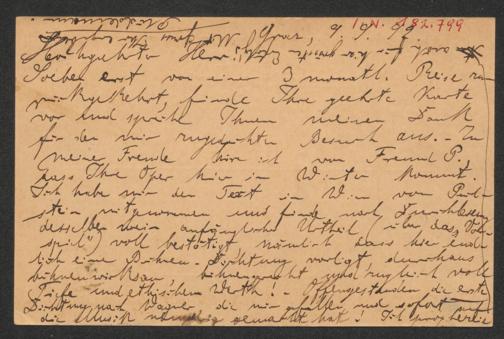 I.N. 182.799
Graz, 9. 9. 89
Hochgeehrter Herr
Soeben erst von einer 3 monatl. Reise zu-
rückgekehrt, finde Ihre geehrte Karte
vor und spreche Ihnen meinen Dank
für den mir zugedachten Besuch aus. – Zu
meiner Freude höre ich von Freund P.,
dass Ihre Oper hier im Winter kommt.
Ich habe mir den Text in Wien von
stein mitgenommen und finde nach Durchlesung
desselben mein anfängliches Urtheil (über das Vor-
spiel) voll bestätigt, nämlich dass hier end-
lich eine Bühnen-Dichtung vorliegt, durchaus
bühnenwirksam, bühnengerecht und zugleich voll
Tiefe und ethischem Werth! – Offengestanden die erste
Dichtung nach Wagner die mir und sofort auf
die Musik gemacht hat! Ich